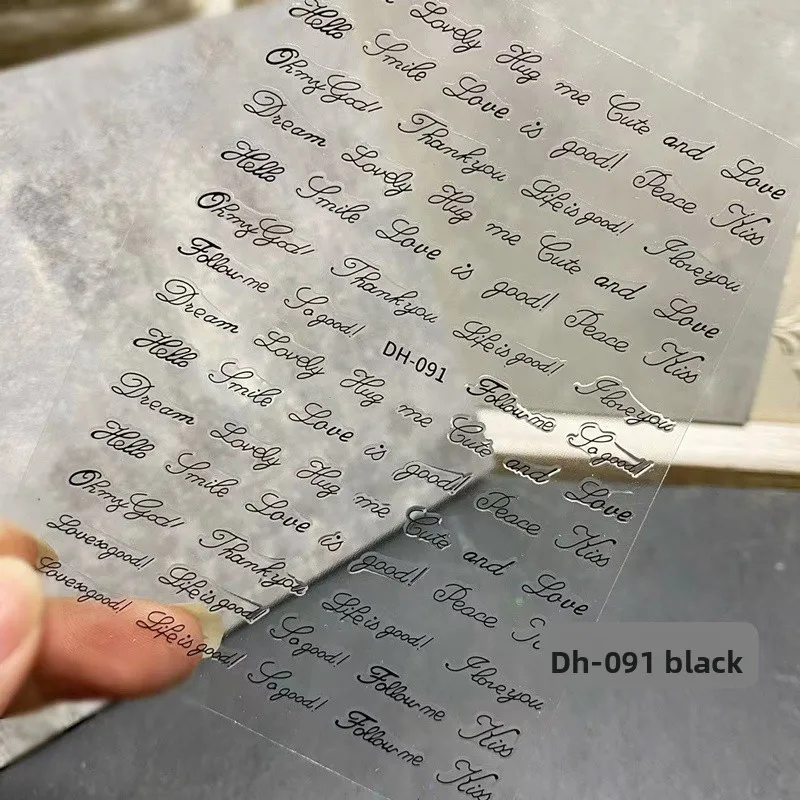 Lovely Hug me Cute and Love
Hello Smile Love is good! Peace Kiss
Oh my God! Thank you Life is good! I love you
Dream Lovely Hug me Cute and Love
Hello Smile Love is good! Peace Kiss
Oh my God! Thank you Life is good! I love you
Follow me So good! DH-091 Follow me So good!
Dream Lovely Hug me Cute and Love
Hello Smile Love is good! Peace Kiss
Dream Lovely Hug me Cute and Love
Hello Smile Love is good! Peace
Oh my God! Thank you Life is good! I love you
Love so good! Life is good! So good! Follow me Kiss
Love so good! Life is good! So good! Follow me Kiss
Dh-091 black